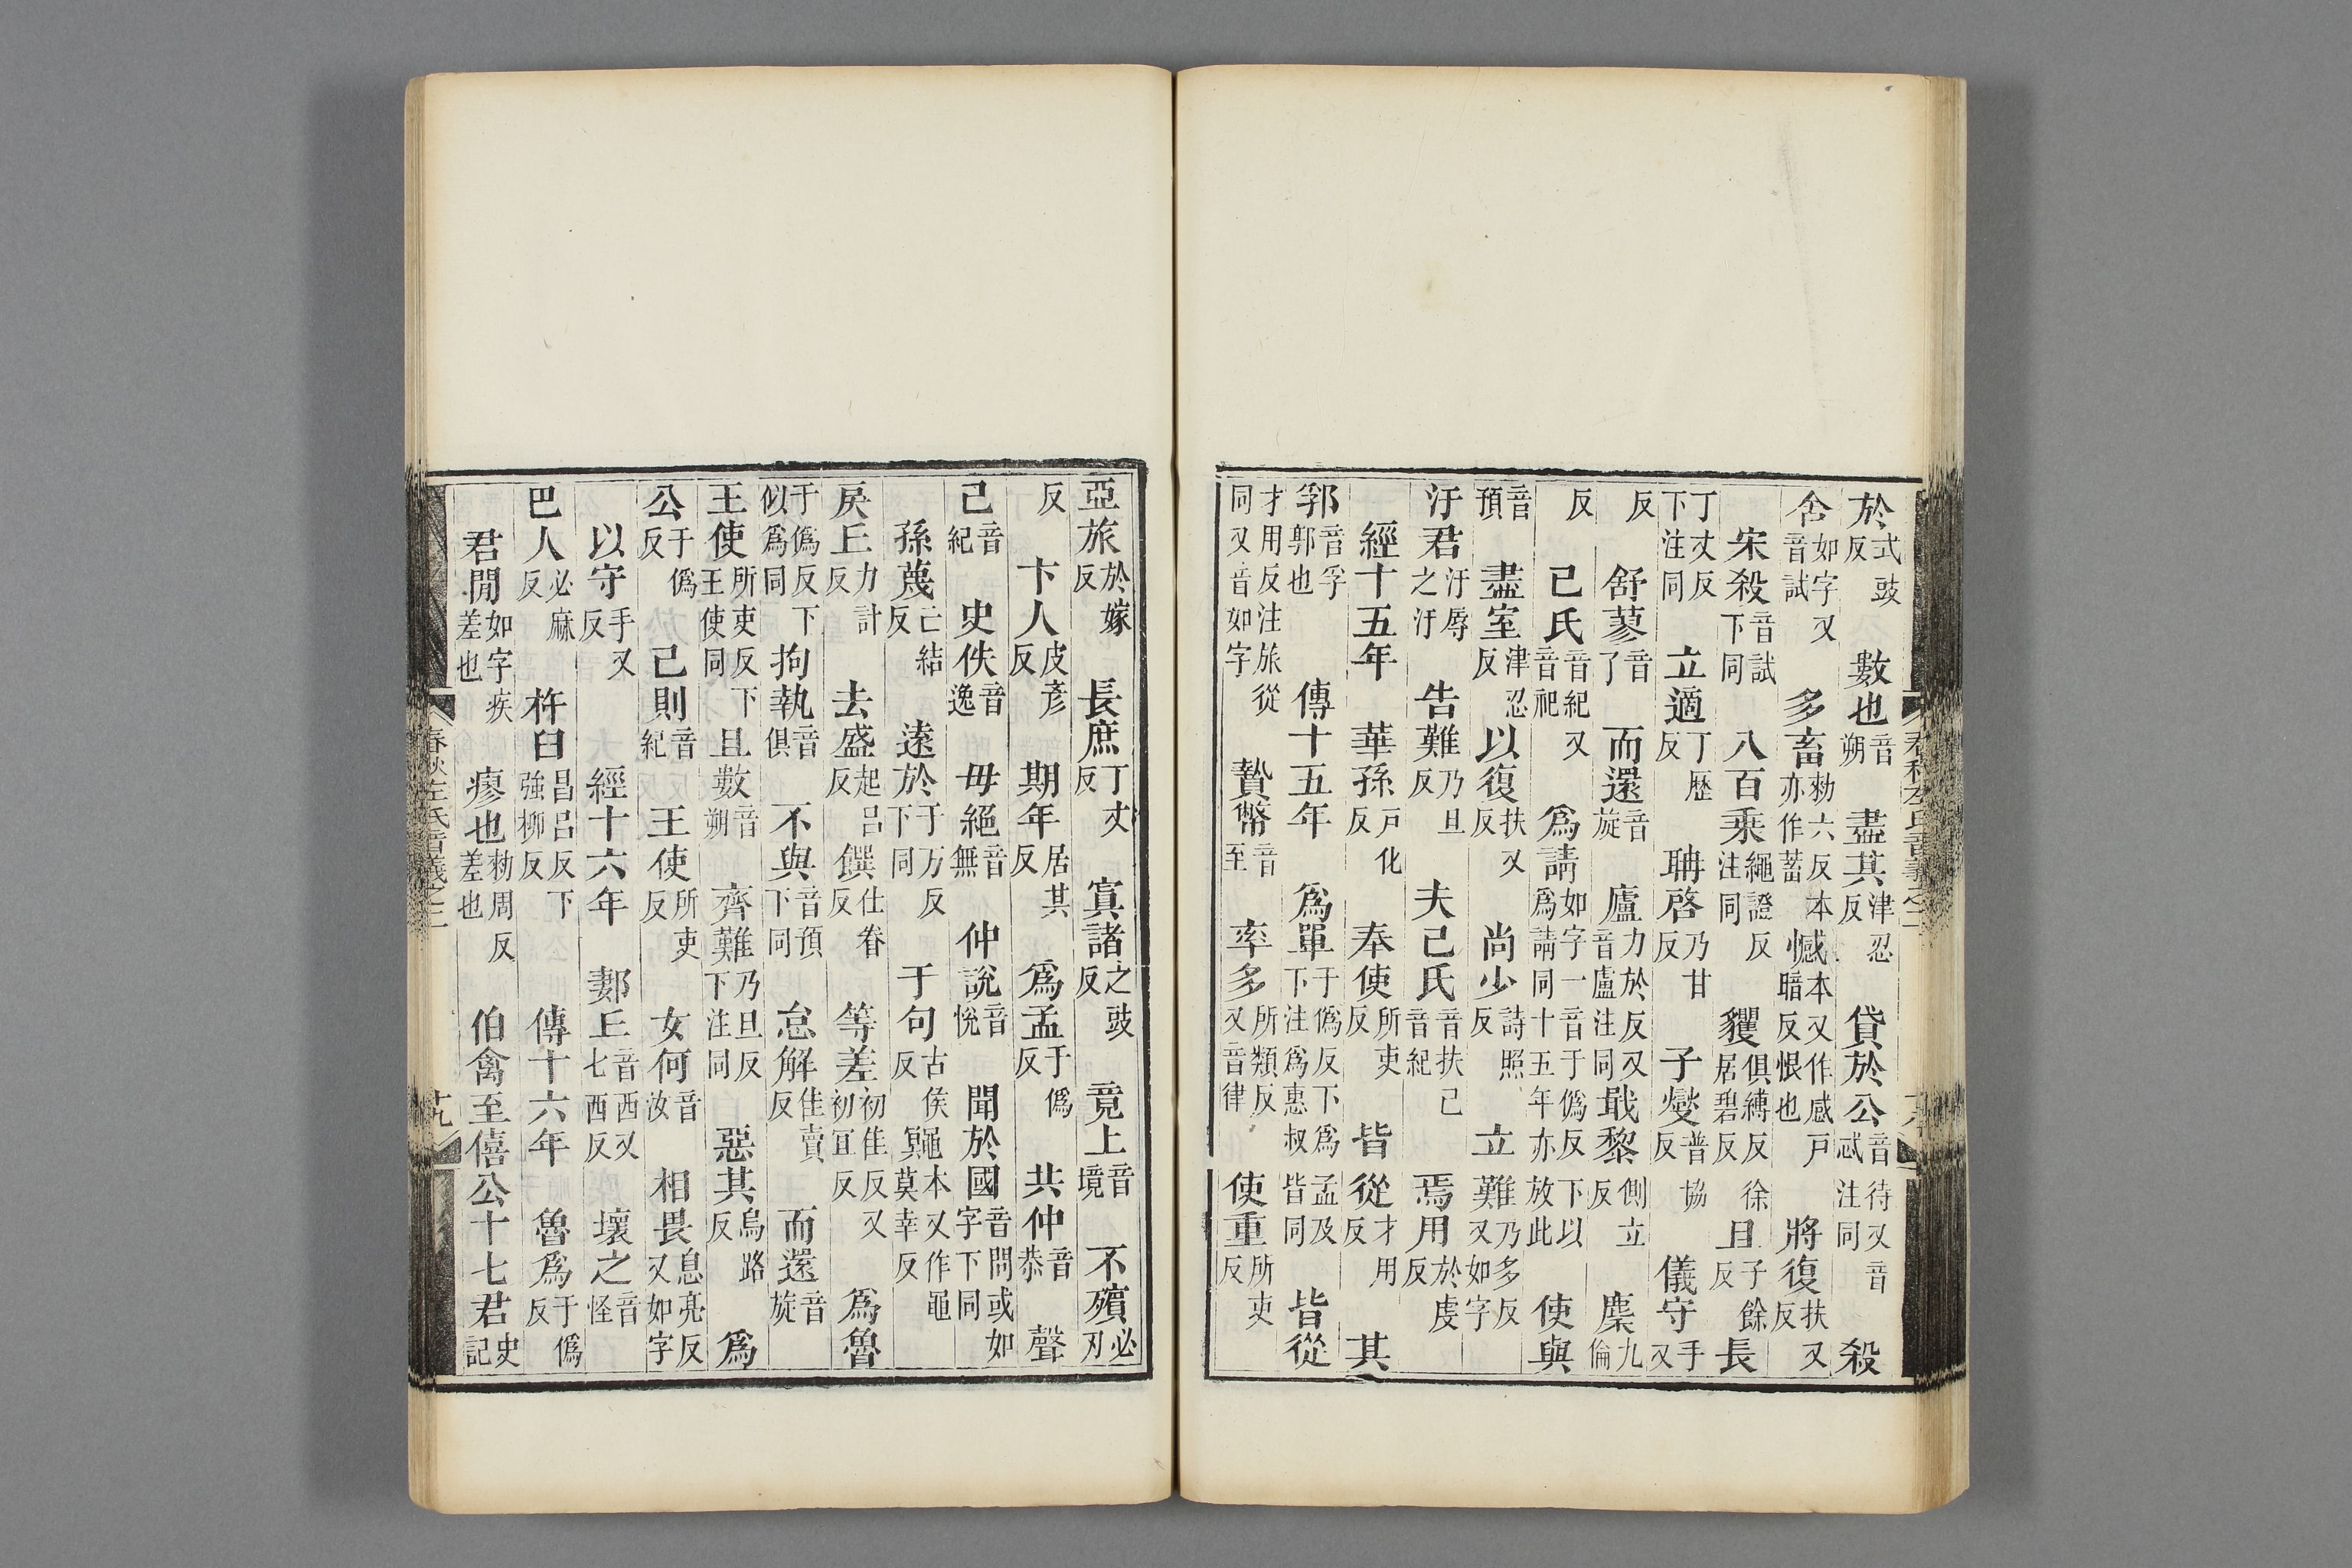 於式豉反　數也音朔　盡其津忍反　貸於公音待又音忒注同　殺
舍如字又音試　多畜勑六反本亦作蓄　憾本又作感戶暗反恨也　將復扶又反
宋殺音試下同　八百乘繩證反注同　貜俱縛反徐居碧反　且子餘反　長
丁丈反下注同　立適丁歷反　聃啓乃甘反　子燮普協反　儀守手又
反　舒蓼音了　而還音旋　廬力於反又音盧注同　戢黎側立反　麇九倫
反　己氏音紀又音祀　爲請如字一音于僞反下以爲請同十五年亦放此　使與
音預　盡室津忍反　以復扶又反　尚少詩照反　立難乃多反又如字
汙君汙辱之汙　告難乃旦反　夫己氏音扶己音紀　焉用於虔反
經十五年　華孫戶化反　奉使所吏反　皆從才用反　其
郛音孚郭也　傳十五年　爲單于僞反下注爲惠叔爲孟及皆同　皆從
才用反注旅從同又音如字　贄幣音至　率多所類反又音律　使重所吏反
亞旅於嫁反　長庶丁丈反　寘諸之豉反　竟上音境　不殯必刃
反　卞人皮彥反　期年居其反　爲孟于僞反　共仲音恭　聲
己音紀　史佚音逸　毋絕音無　仲說音悅　聞於國音問或如字下同
孫蔑亡結反　遠於于万反下同　于句古侯反　冥黽本又作黽莫幸反
戾丘力計反　去盛起呂反　饌仕眷反　等差初佳反又初宜反　爲魯
于僞反下似爲同　拘執音俱　不與音預下同　怠解佳賣反　而還音旋
王使所吏反下王使同　且數音朔　齊難乃旦反下注同　惡其烏路反　爲
公于僞反　己則音紀　王使所吏反　女何音汝　相畏息亮反又如字
以守手又反　經十六年　郪丘音西又七西反　壞之音怪
巴人必麻反　杵臼昌呂反下強柳反　傳十六年　魯爲于僞反
君閒如字疾差也　瘳也勑周反差也　伯禽至僖公十七君史記
春秋左氏音義之二
十八
春秋左氏音義之二
十九